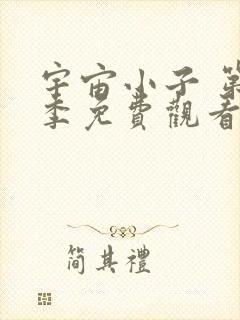 宇宙小子 第
季免費觀看
简其禮